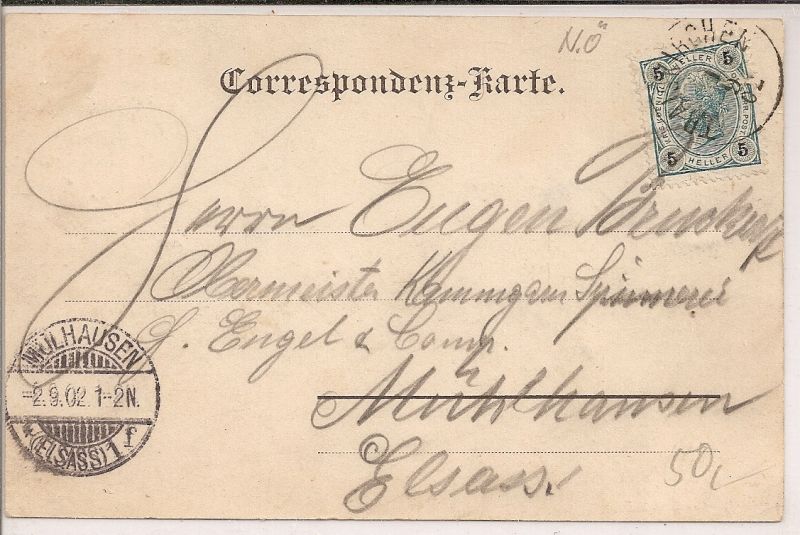 N.Ö
Correspondenz-Karte.
5 HELLER 5
5 HELLER 5
Herrn Eugen
Obermeister Kammgarn Spinnerei
Engel & Comp.
Mühlhausen
Elsass.
50,
MÜLHAUSEN
-2.9.02.1-2N.
*(ELSASS)1f